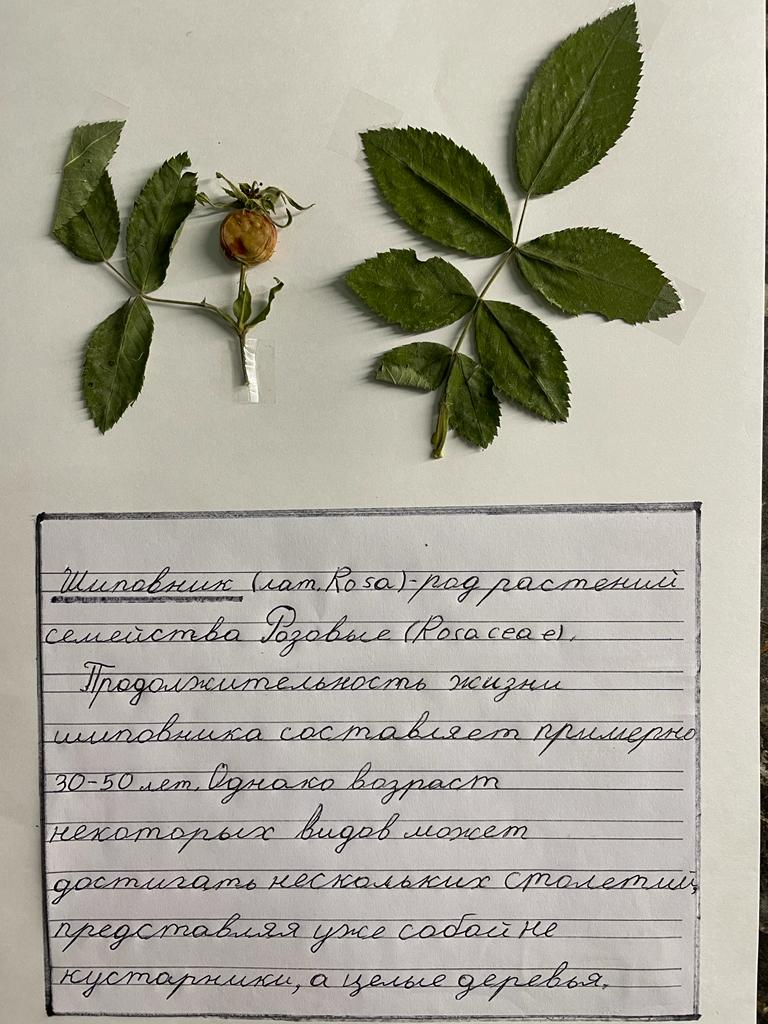 Шиповник (лат. Rosa)-род растений
семейства Розовые (Rosaceae).
Продолжительность жизни
шиповника составляет примерно
30-50 лет. Однако возраст
некоторых видов может
достигать нескольких столетий,
представляя уже собой не
кустарники, а целые деревья.